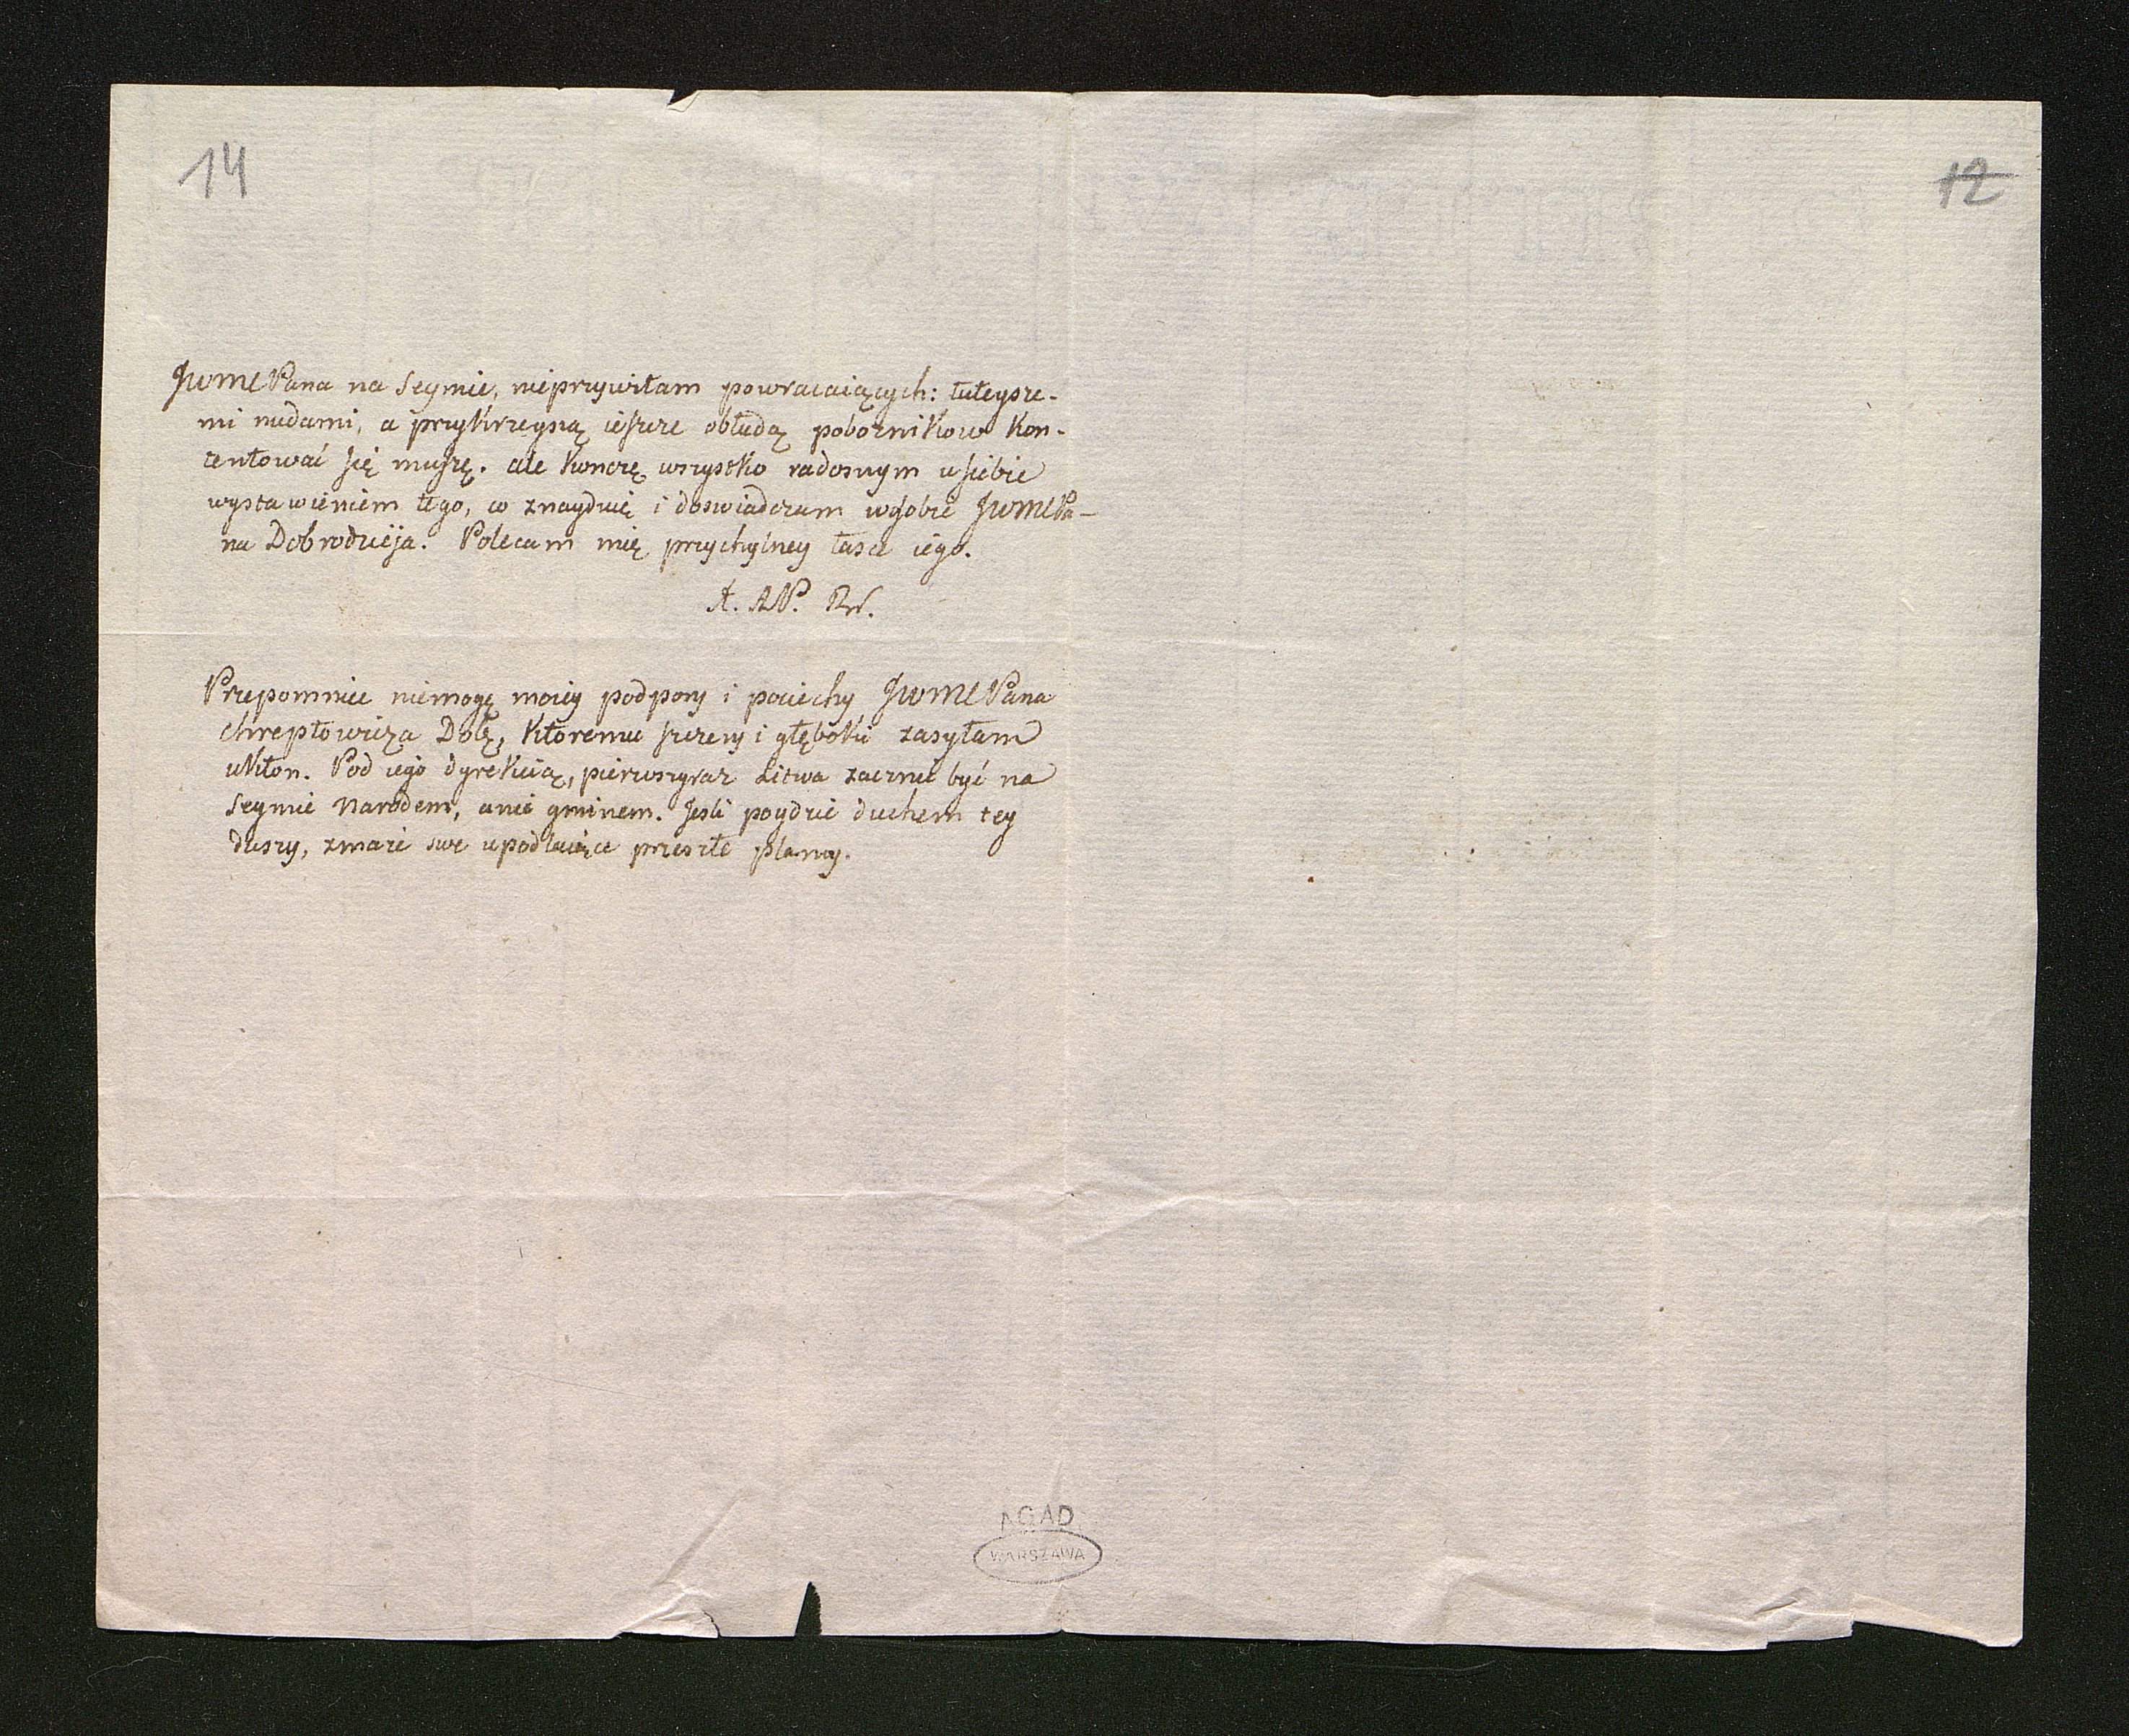 14
12
JWMC Pana na Seymie, nieprzywitam powracaiących: tuteysze-
mi nudami, a przykrzeyszą ieszcze obłudą pobożnikow kon-
tentować się muszę. ale kończę wszystko radosnym u siebie
wystawieniem tego, co znayduię i doswiadczam w osobie JWMC Pa-
na Dobrodzieja. Polecam mię przychylney łasce iego.
Przepomniec niemogę moiey podpory i pociechy JWMC Pana
Chreptowicza
ktoremu szczery i głęboki zasyłam
ukłon. Pod iego dyrekcią, pierwszyraz Litwa zacznie być na
Seymie Narodem, anie gminem. Jesli poydzie duchem tey
duszy, zmaże swe upodlaiące przeszłe plamy.
AGAD
WARSZAWA